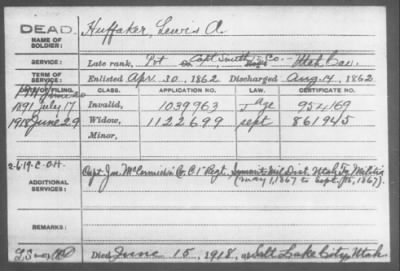 DEAD.
NAME OF SOLDIER:
Huffaker, Lewis A.
SERVICE:
Late rank, Pvt Capt Smith's Co. Utah Cav.
TERM OF SERVICE:
Enlisted Apr. 30, 1862 Discharged Aug. 14, 1862
DATE OF FILING. CLASS. APPLICATION NO. LAW. CERTIFICATE NO.
1891 July 17 Invalid, 1039963 Age 954169
1918 June 29 Widow, 1122699 sept 861945
Minor,
2-6-19. C.O.H.
ADDITIONAL SERVICES:
Capt. Jno. McCormick's Co. C. 1" Regt., Sanpete Mil. Dist. Utah Ter. Militia
(May 1, 1867 to Sept. 15, 1867).
REMARKS:
Died June 15, 1918, at Salt Lake City, Utah.